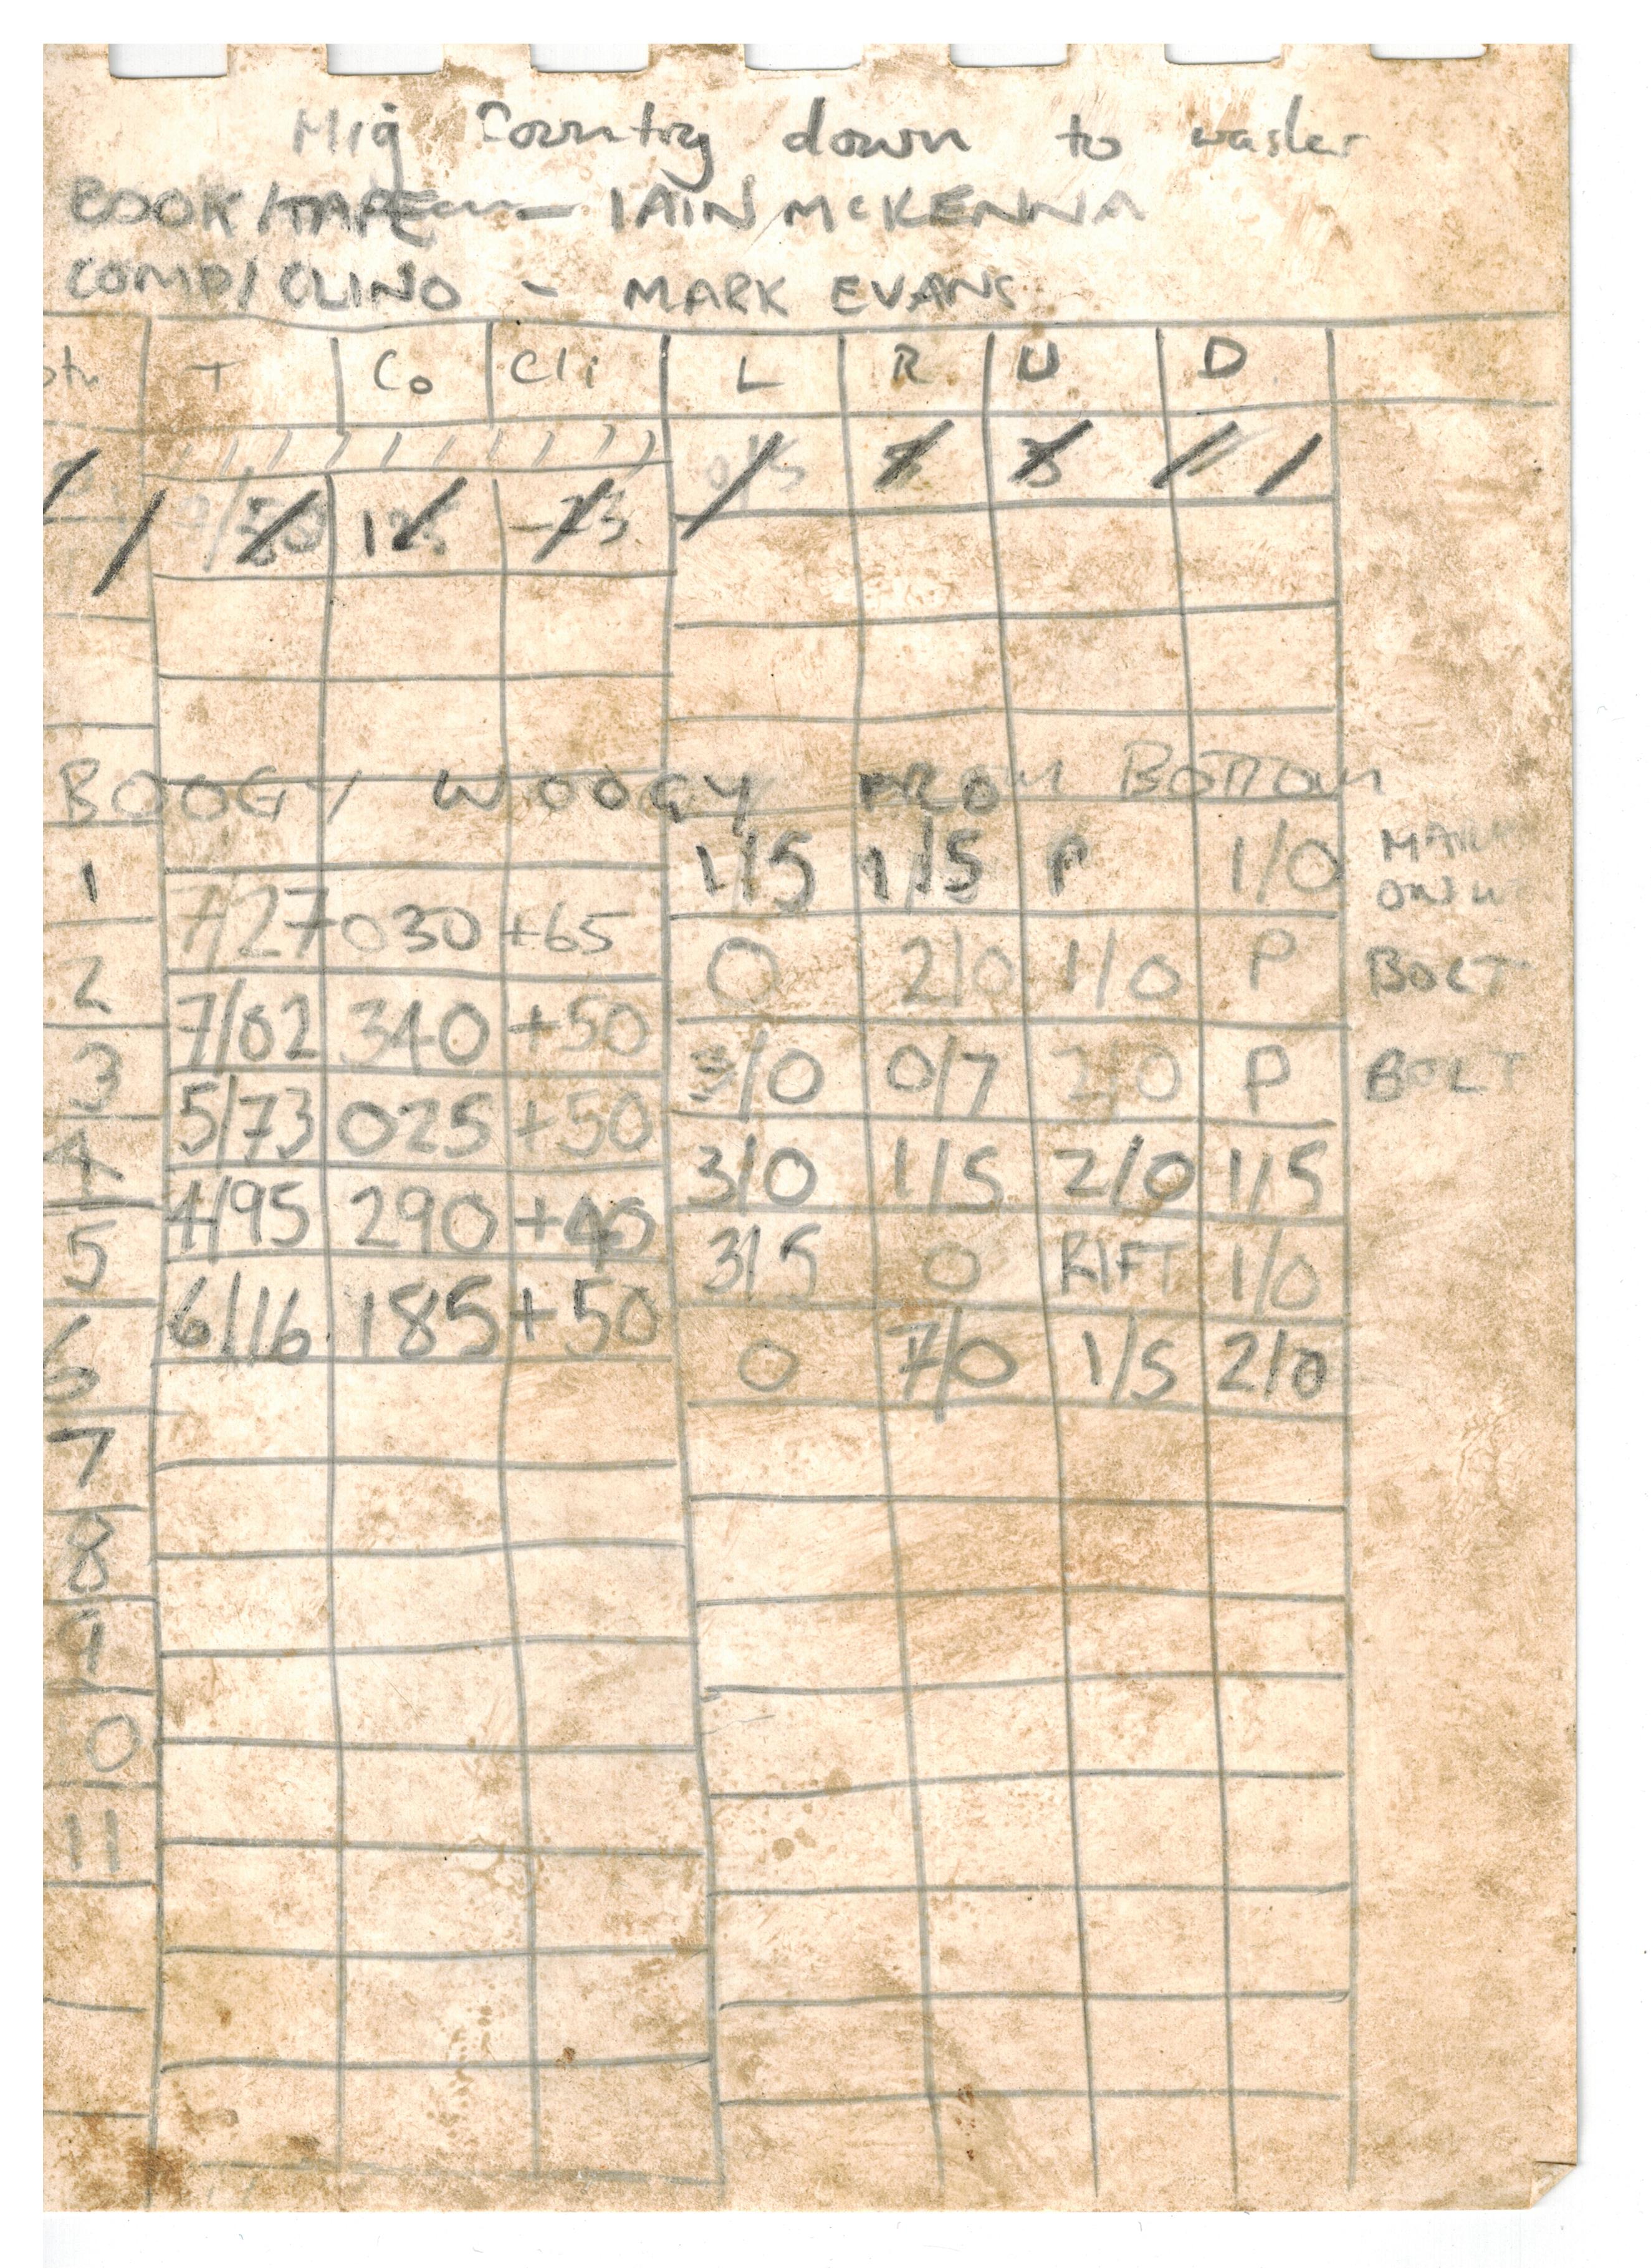 Mig Country down to
BOOK/TAPE — IAIN MCKENNA
COMP/CLINO - MARK EVANS
T Co Cli L R U D
BOOGY WOOGY FROM BOTTOM
1 1/5 1/5 P 1/0
7/27 030 +65
2 0 2/0 1/0 P BOLT
7/02 340 +50
3 3/0 0/7 2/0 P BOLT
5/73 025 +50
4 3/0 1/5 2/0 1/5
4/95 290 +45
5 3/5 0 RIFT 1/0
6/16 185 +50
6 0 7/0 1/5 2/0
7
8
9
0
11